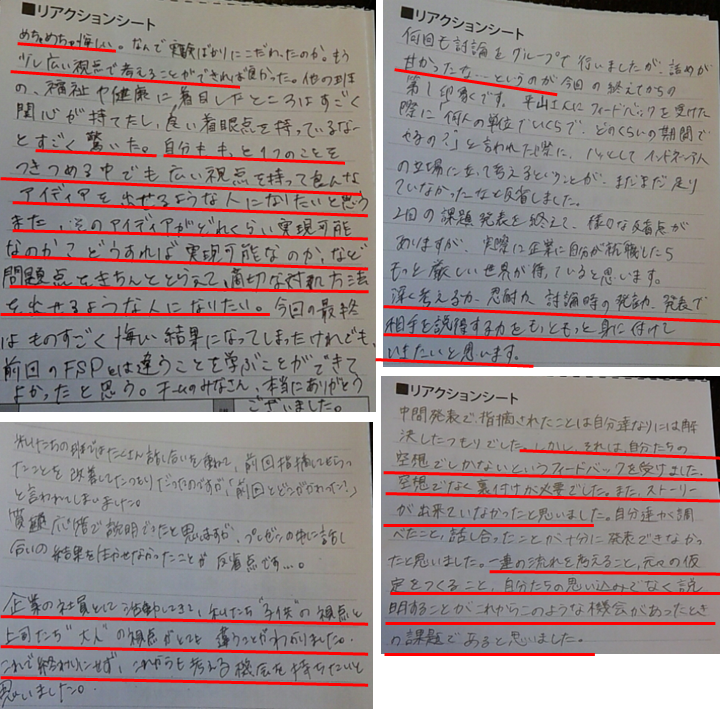 ■リアクションシート
めちゃめちゃ悔しい。なんで実験ばかりにこだわったのか。もう
少し広い視点で考えることができれば良かった。他の班
の、福祉や健康に着目したところはすごく
関心が持てたし、良い着眼点を持っているな
とすごく驚いた。自分ももっと1つのことを
つきつめる中でも広い視点を持って色んな
アイディアを出せるような人になりたいと思う
また、そのアイディアがどれくらい実現可能
なのか?どうすれば実現可能なのか、など
問題点をきちんととらえて、適切な対処方法
を出せるような人になりたい。今回の最終
はものすごく悔しい結果になってしまったけれども、
前回のFSPとは違うことを学ぶことができて
よかったと思う。チームのみなさん、本当にありがとう
ございました。
■リアクションシート
何回も討論をグループで行いましたが、詰めが
甘かったな…というのが今回の終えてからの
第1印象です。平山さんにフィードバックを受けた
際に「何人の単位でいくらで、どのくらいの期間で
やるの?」と言われた際に、ハッとしてインドネシア人
の立場に立って考えるということが、まだまだ足り
ていなかったなと反省しました。
2回の課題発表を終えて、様々な反省点が
ありますが、実際に企業に自分が就職したら
もっと厳しい世界が待っていると思います。
深く考える力、忍耐力、討論時の発言力、発表で
相手を説得する力をもっともっと身に付けて
いきたいと思います。
私たちの班ではたくさん話し合いを重ねて、前回指摘してもらっ
たことを改善してたつもりだったのですが、「前回とどこがかわった?」
と言われてしまいました。
質疑応答で説明できたと思いますが、プレゼンの中に話し
合いの結果を生かせなかったことが反省点です…。
企業の社員として活動してきて、私たち"子供"の視点と
上司たち"大人"の視点がとても違うことがわかりました。
これで終わりにせず、これからも考える機会を持ちたいと
思いました。
■リアクションシート
中間発表で、指摘されたことは自分達なりには解
決したつもりでした。しかし、それは、自分たちの
空想でしかないというフィードバックを受けました。
空想でなく裏付けが必要でした。また、ストーリー
が出来ていなかったと思いました。自分達が調
べたこと、話し合ったことが十分に発表できなかっ
たと思いました。一連の流れを考えること、元々の仮
定をつくること、自分たちの思い込みでなく説
明することがこれからこのような機会があったとき
の課題であると思いました。